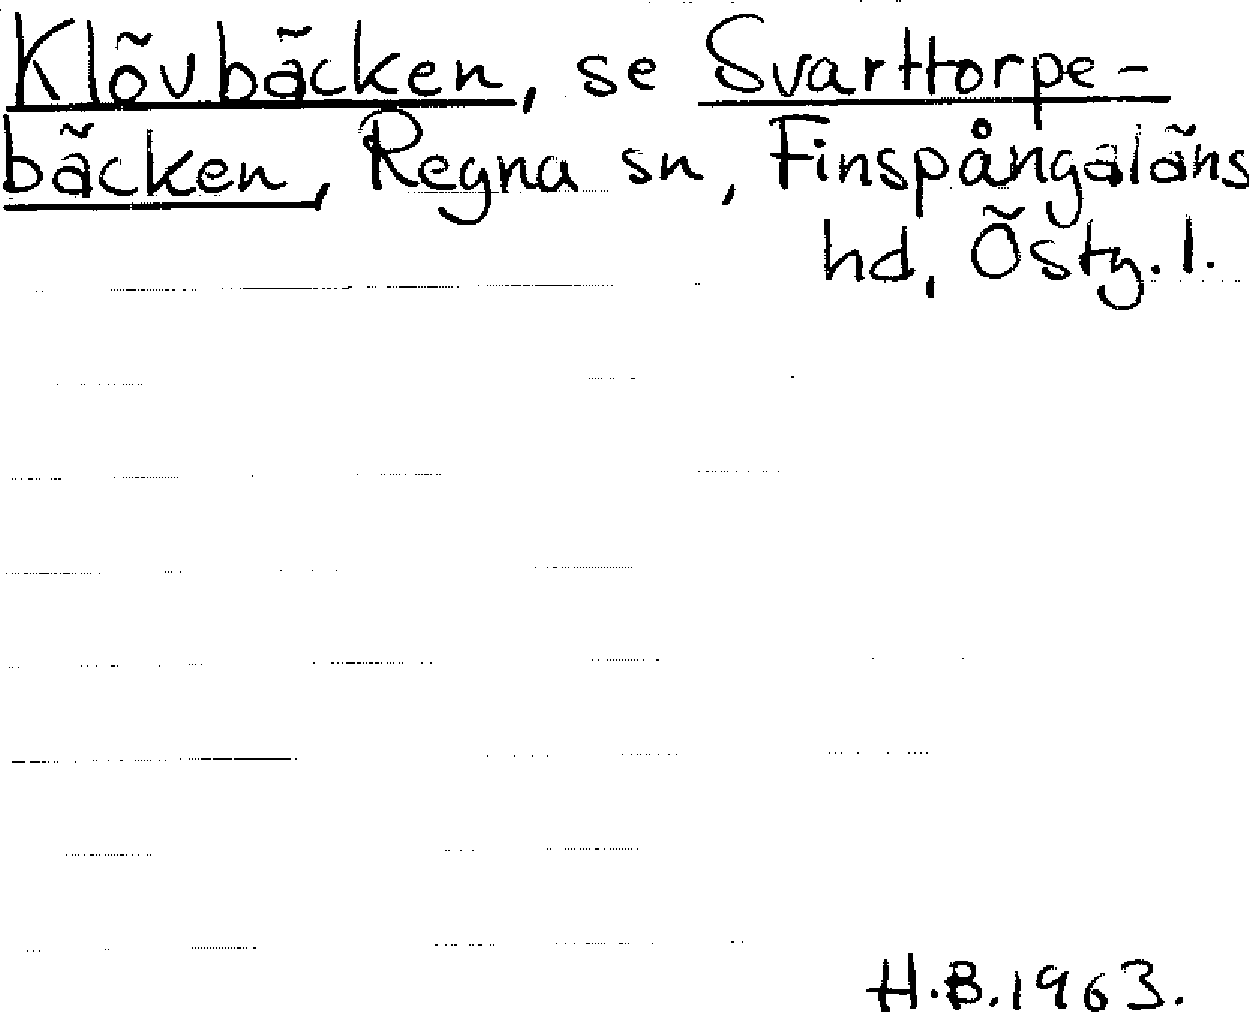 Klövbäcken, se Svarttorpe-
bäcken, Regna sn, Finspångaläns
hd, Östg. l.
H.B. 1963.